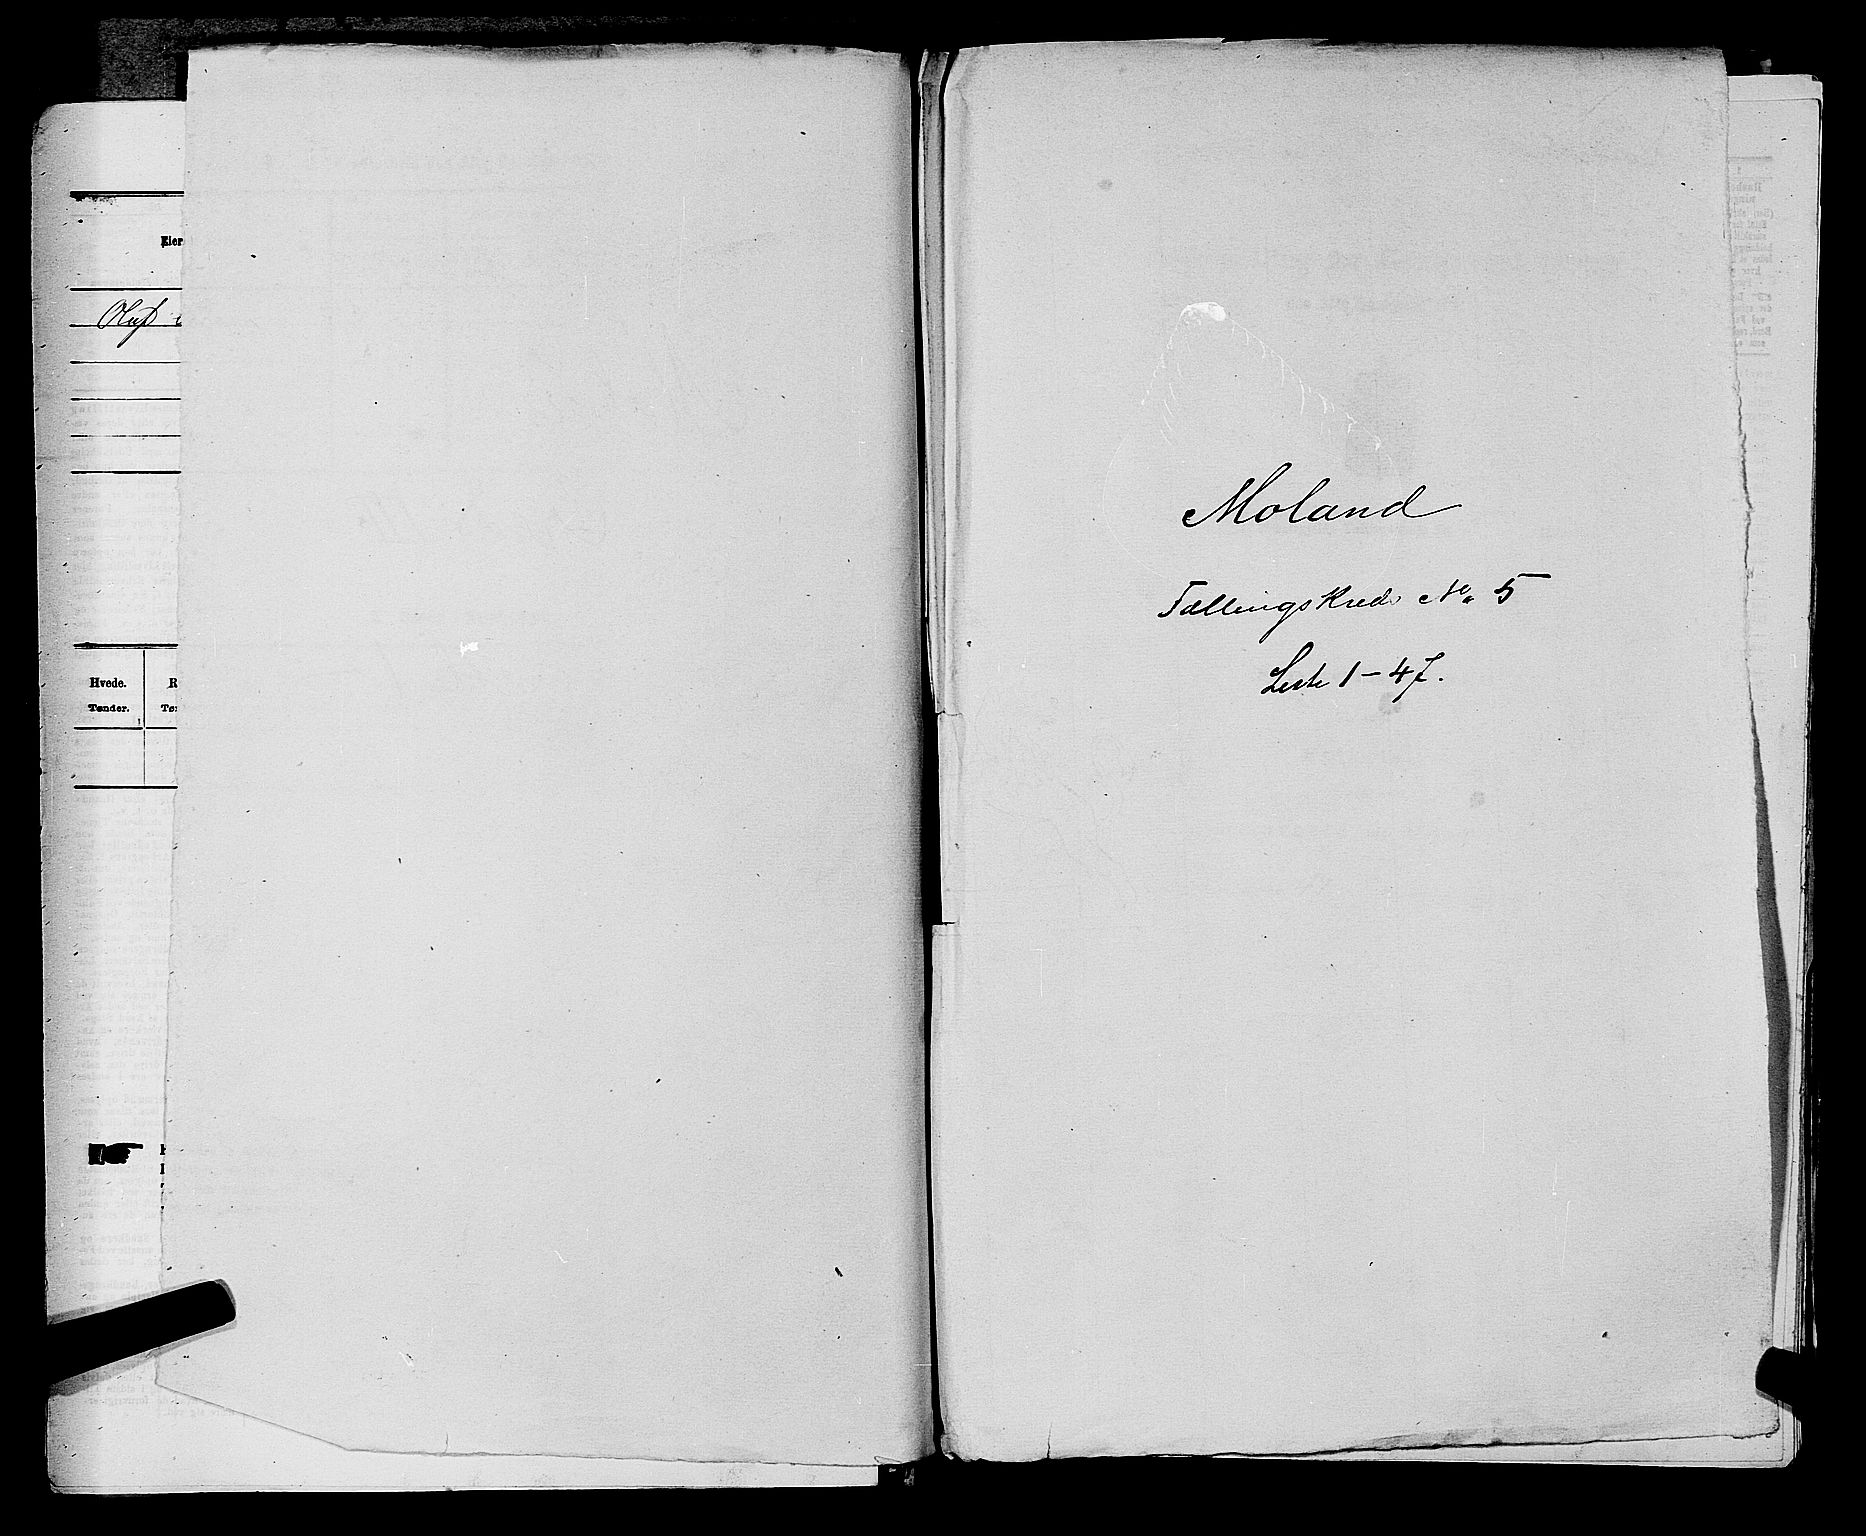 Eier
Oluf
Hvede.
Tønder.
Moland
Tællingskreds No. 5
Liste 1-47.